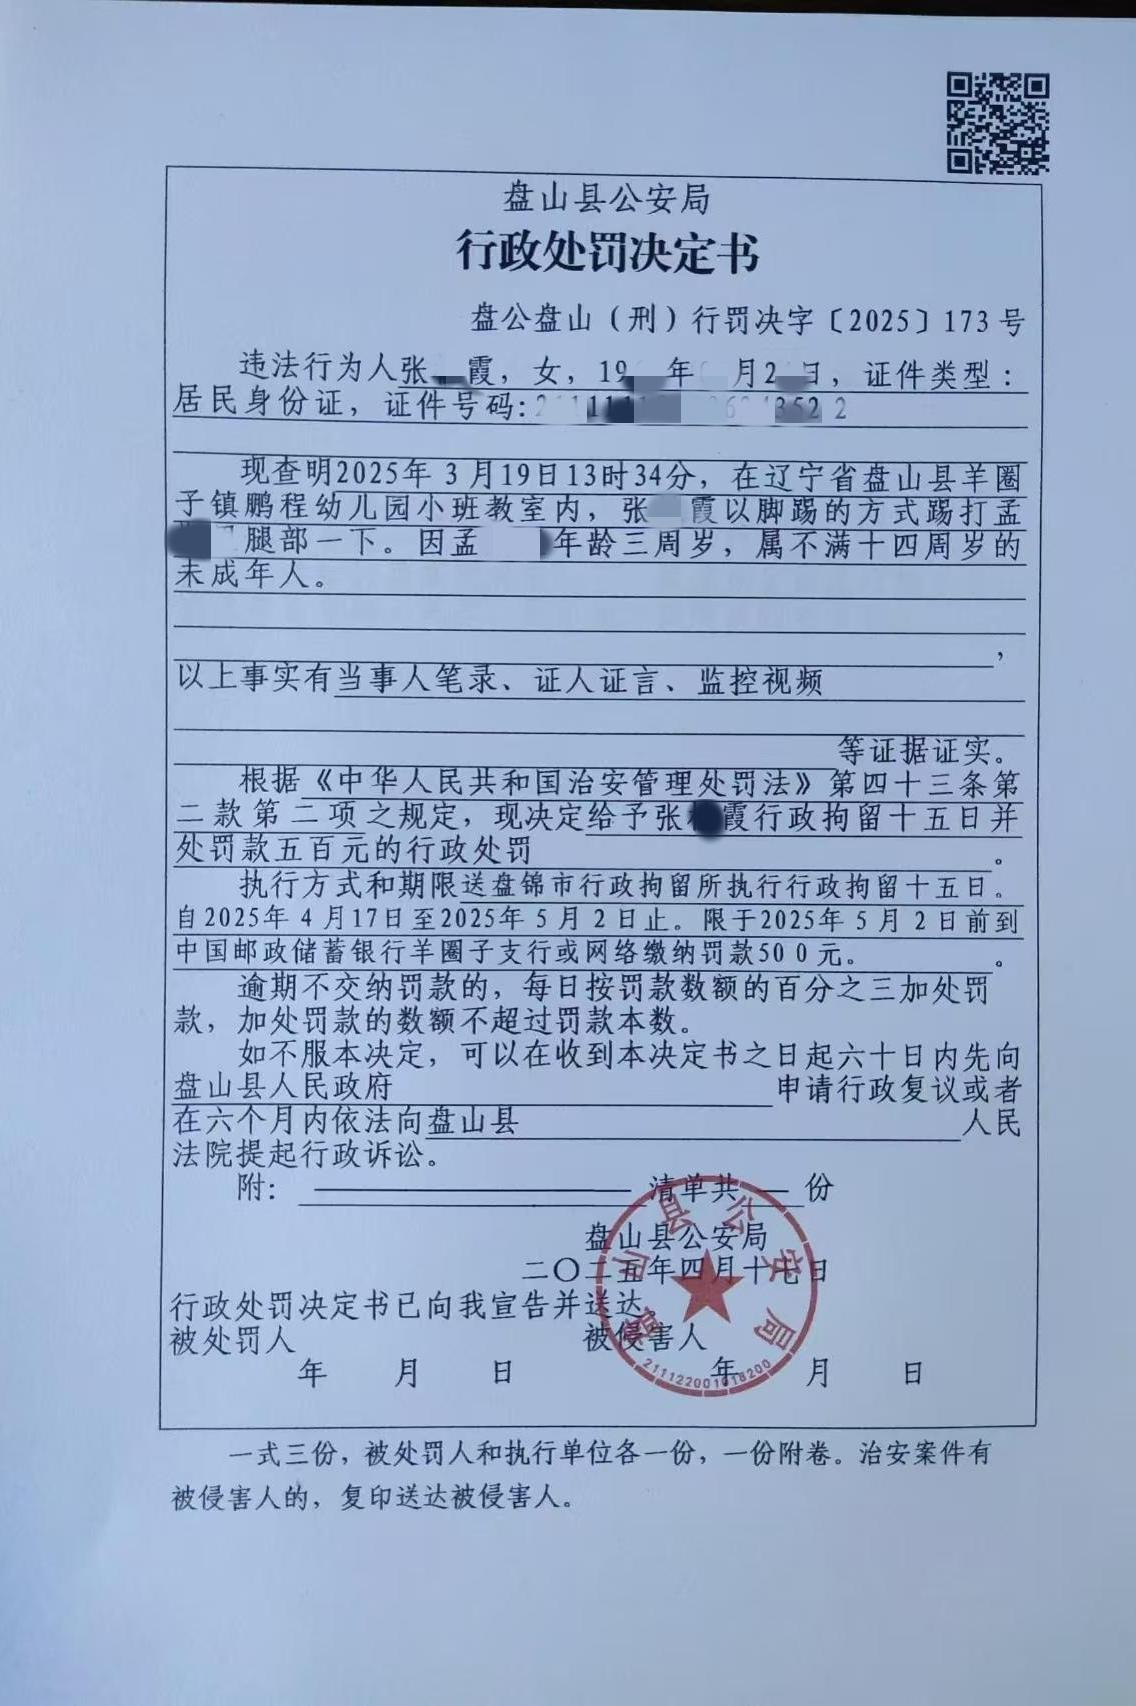 盘山县公安局
行政处罚决定书
盘公盘山（刑）行罚决字〔2025〕173号
违法行为人张 霞，女，19 年 月2 日，证件类型：
居民身份证，证件号码:
现查明2025年3月19日13时34分，在辽宁省盘山县羊圈
子镇鹏程幼儿园小班教室内，张 霞以脚踢的方式踢打孟
腿部一下。因孟 年龄三周岁，属不满十四周岁的
未成年人。
，
以上事实有当事人笔录、证人证言、监控视频
等证据证实。
根据《中华人民共和国治安管理处罚法》第四十三条第
二款第二项之规定，现决定给予张 霞行政拘留十五日并
处罚款五百元的行政处罚 。
执行方式和期限送盘锦市行政拘留所执行行政拘留十五日。
自2025年4月17日至2025年5月2日止。限于2025年5月2日前到
中国邮政储蓄银行羊圈子支行或网络缴纳罚款500元。 。
逾期不交纳罚款的，每日按罚款数额的百分之三加处罚
款，加处罚款的数额不超过罚款本数。
如不服本决定，可以在收到本决定书之日起六十日内先向
盘山县人民政府 申请行政复议或者
在六个月内依法向盘山县 人民
法院提起行政诉讼。
附： 清单共 份
盘山县公安局
二〇二五年四月十七日
行政处罚决定书已向我宣告并送达。
被处罚人 被侵害人
年 月 日 年 月 日
盘山县公安局
211122001018200
一式三份，被处罚人和执行单位各一份，一份附卷。治安案件有
被侵害人的，复印送达被侵害人。